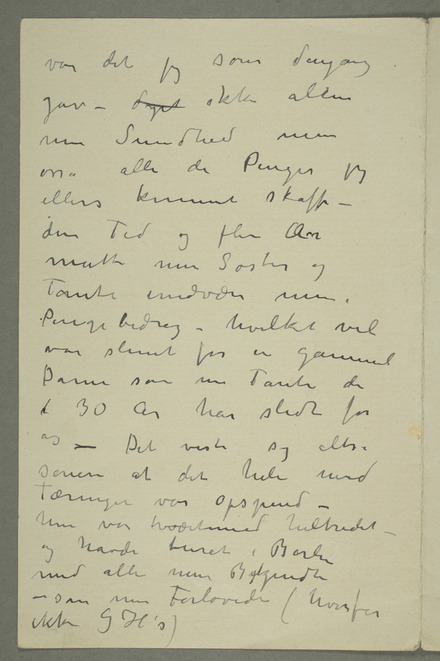 var det jeg som dengang
gav – ikke allene
min Sundhed men
også alle de Penger jeg
ellers kunnet skaffe –
den Tid og flere Aar
måtte min Søster og
Tante undvære mine
Pengebidrag – hvilket vel
var slemt for en gammel
Dame som min Tante de
i 30 Aar har slidt for
os – Det viste sig altså
senere at det hele med
Tæringen var opspind –
hun var tværtimod helbredet –
og havde turet i Berlin
med alle mine Bekjendte
– som min Forlovede (hvorfor
ikke G H's)